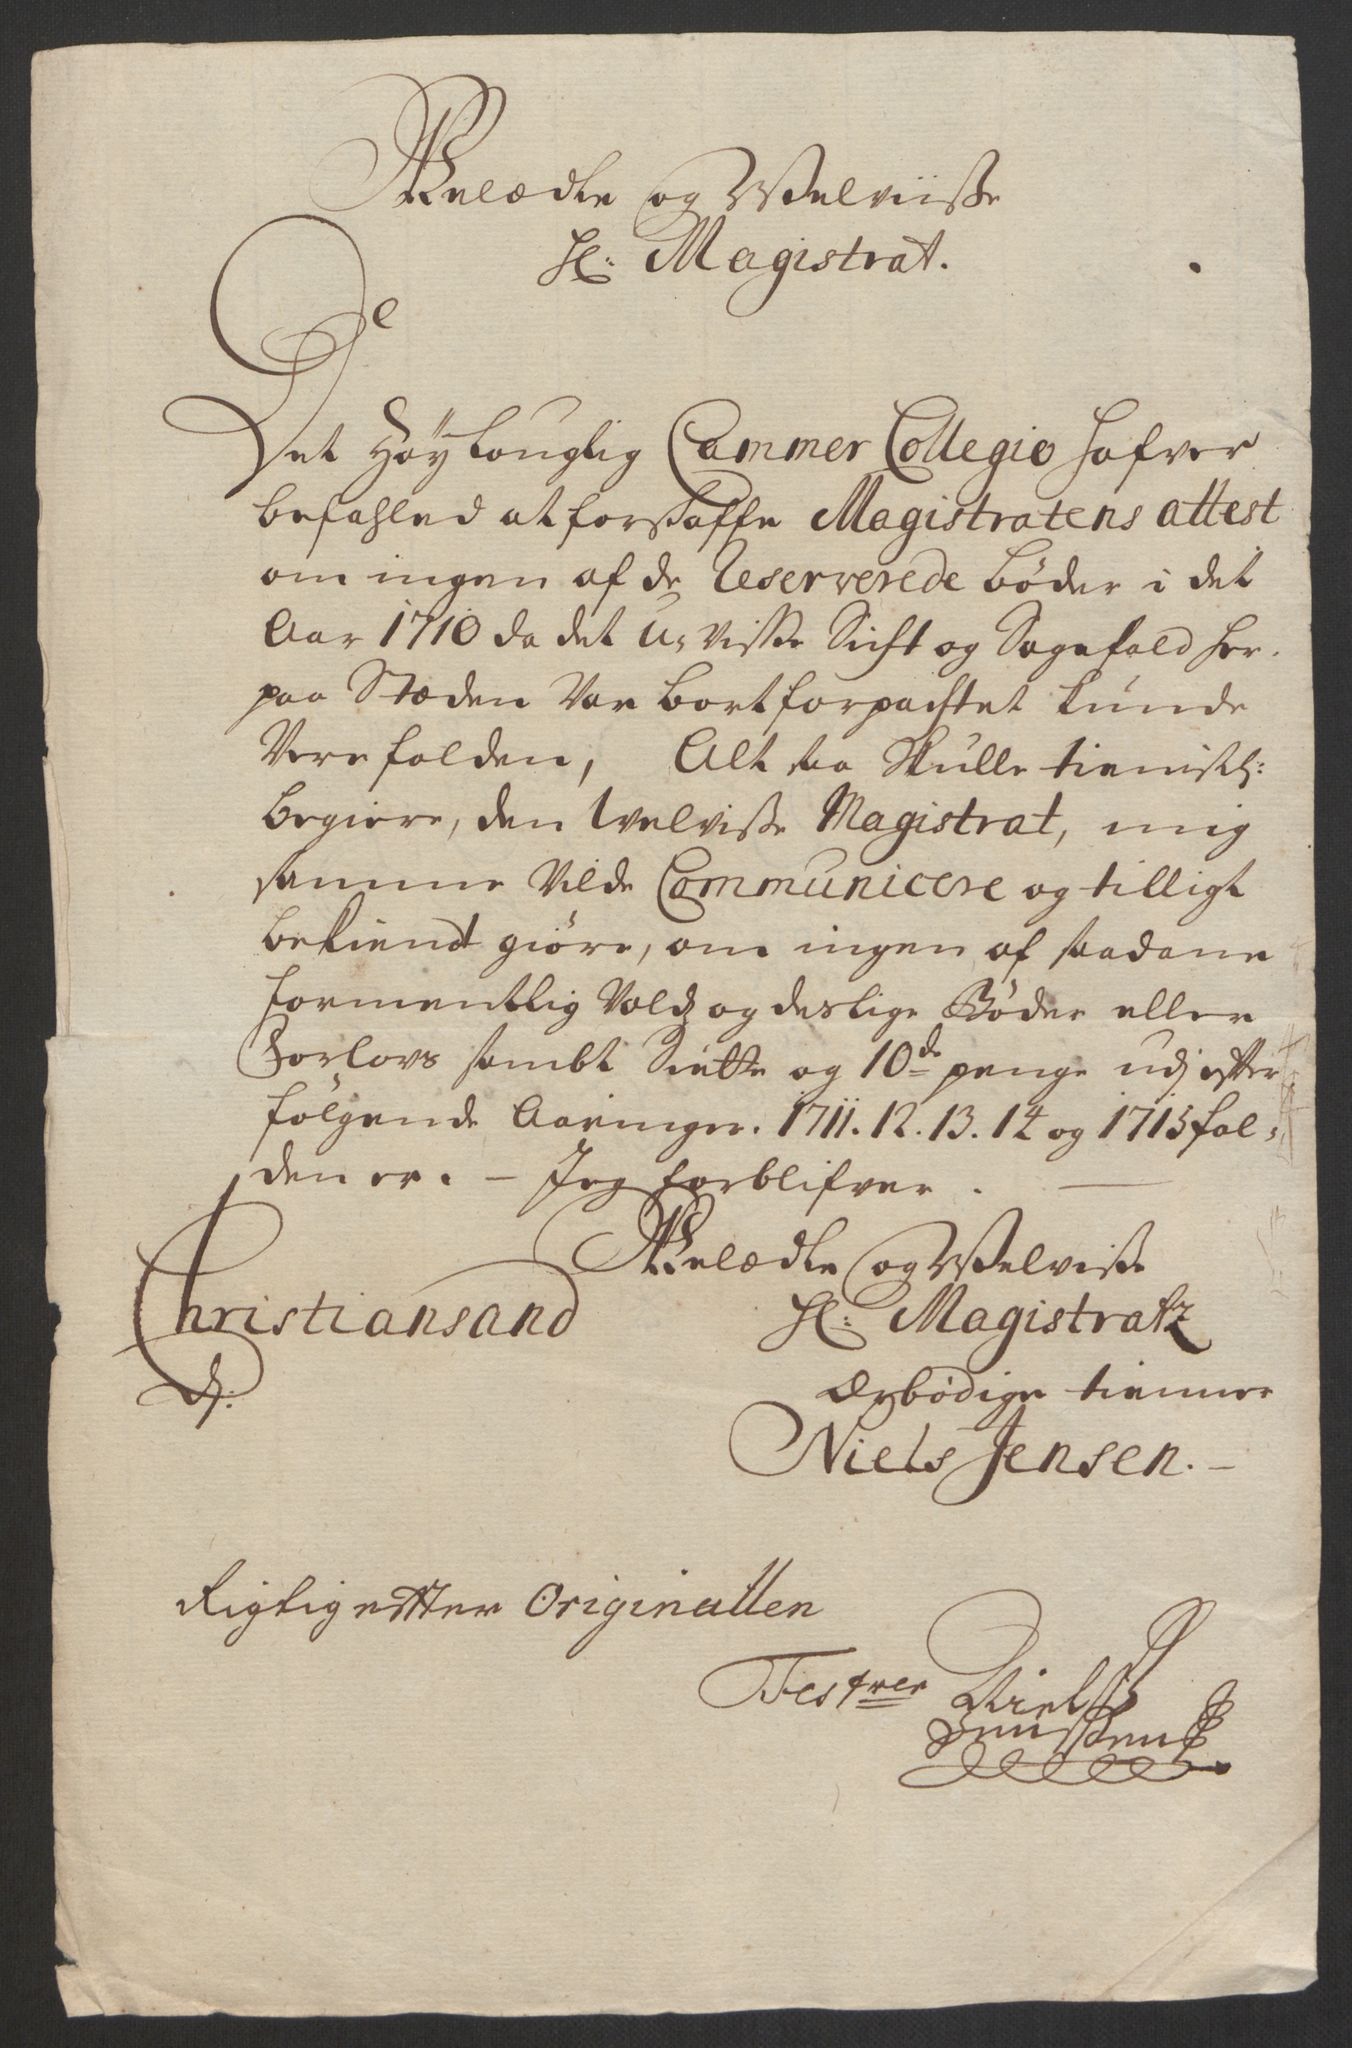 Welædle og Welviisse
H: Magistrat.
Det Höylouglig Cammer Collegio hafver
befahled at forskaffe Magistratens attest
om ingen af de Reserverede böder i det
Aar 1710 da det u-visse Sicht og Sagefald her-
paa Stæden Var bortforpachtet kunde
Vere falden, Alt saa Skulle tienistl:
begiere, den Welvisse Magistrat, mig
samme Vilde Communicere og tilligt
bekiendt giöre, om ingen af saadane
formentlig Vold og deslige Böder eller
Forlovs sambt Siette og 10de penge udj effter
fölgende Aaringer. 1711. 12. 13. 14 og 1715 fal-
den er. - Jeg forblifver.
Welædle og Welvisse
Christiansand H: Magistratz
d:
ærbödige tienner
Niels Jensen. -
Rigtig effter Originallen
Testerer Niels
Jensen